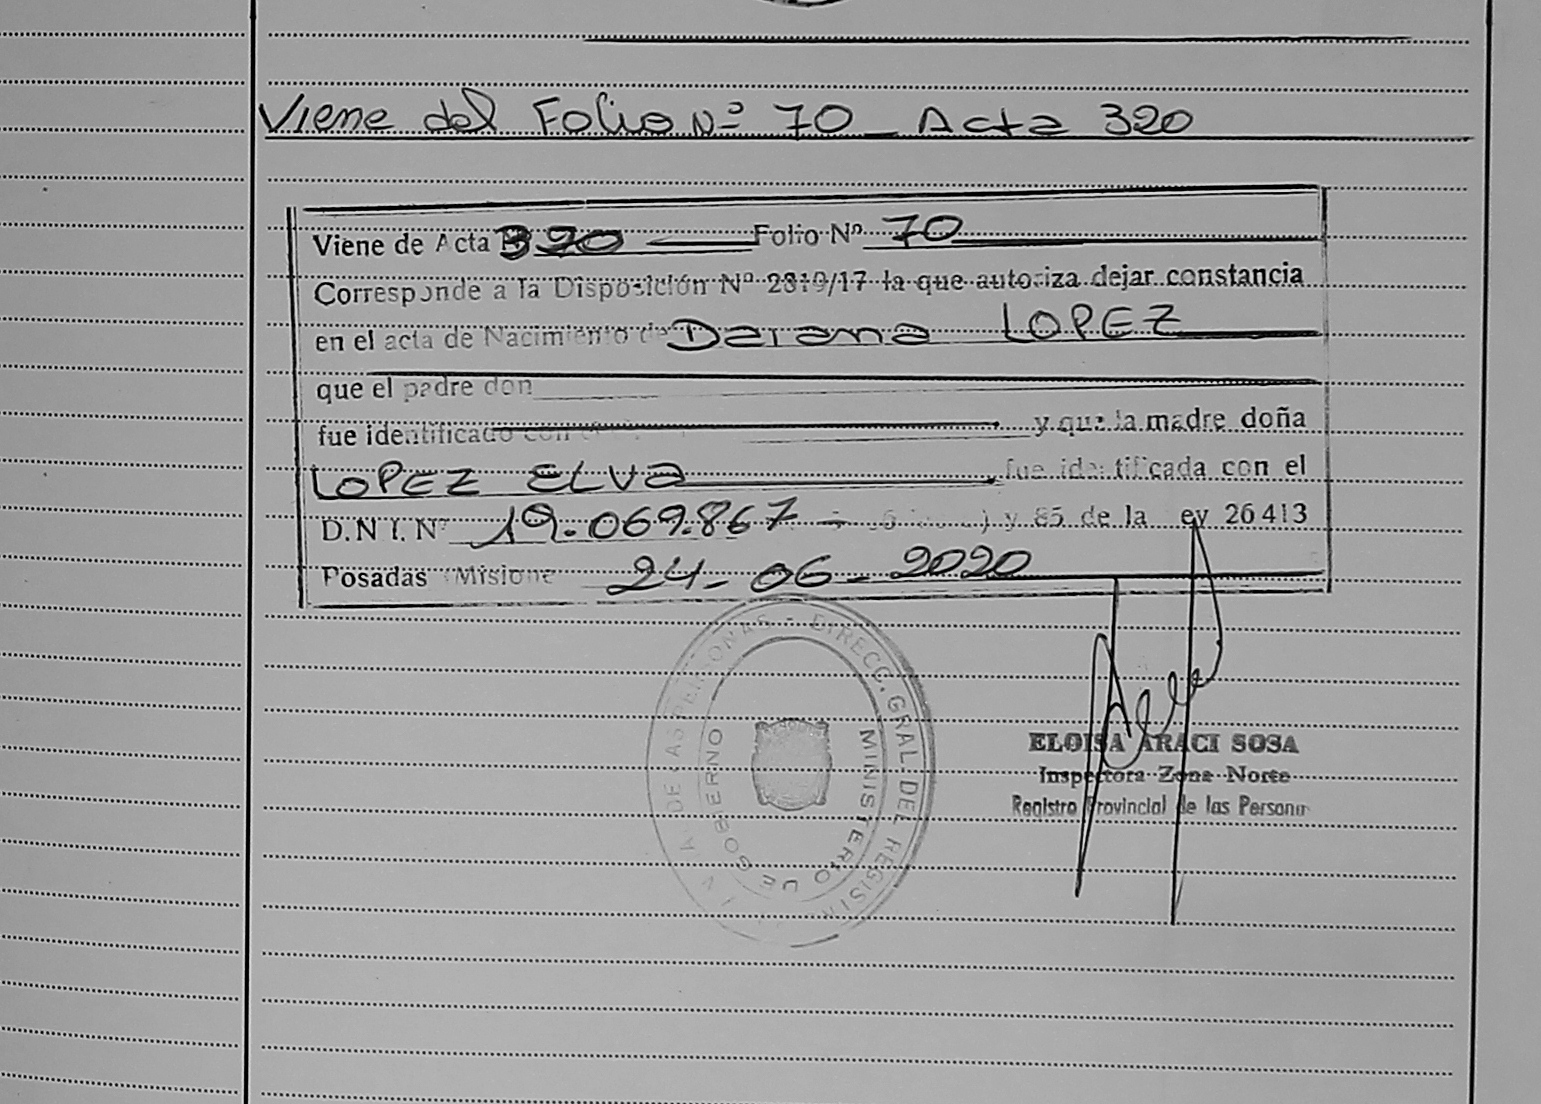 Viene del Folio Nº 70 - Acta 320
Viene de Acta 320 Folio Nº 70
Corresponde a la Disposición Nº 2819/17 la que autoriza dejar constancia
en el acta de Nacimiento de Daiana LOPEZ
que el padre don
fue identificado con y que la madre doña
LOPEZ ELVA fue identificada con el
D.N.I. Nº 19.069.867 - ) y 85 de la ey 26413
Posadas Misione 24-06-2020
DE LAS PERSONAS - DIRECC. GRAL. DEL REGISTR
MINISTERIO DE GOBIERNO
ELOISA ARACI SOSA
Inspectora Zona Norte
Registro Provincial de las Persona